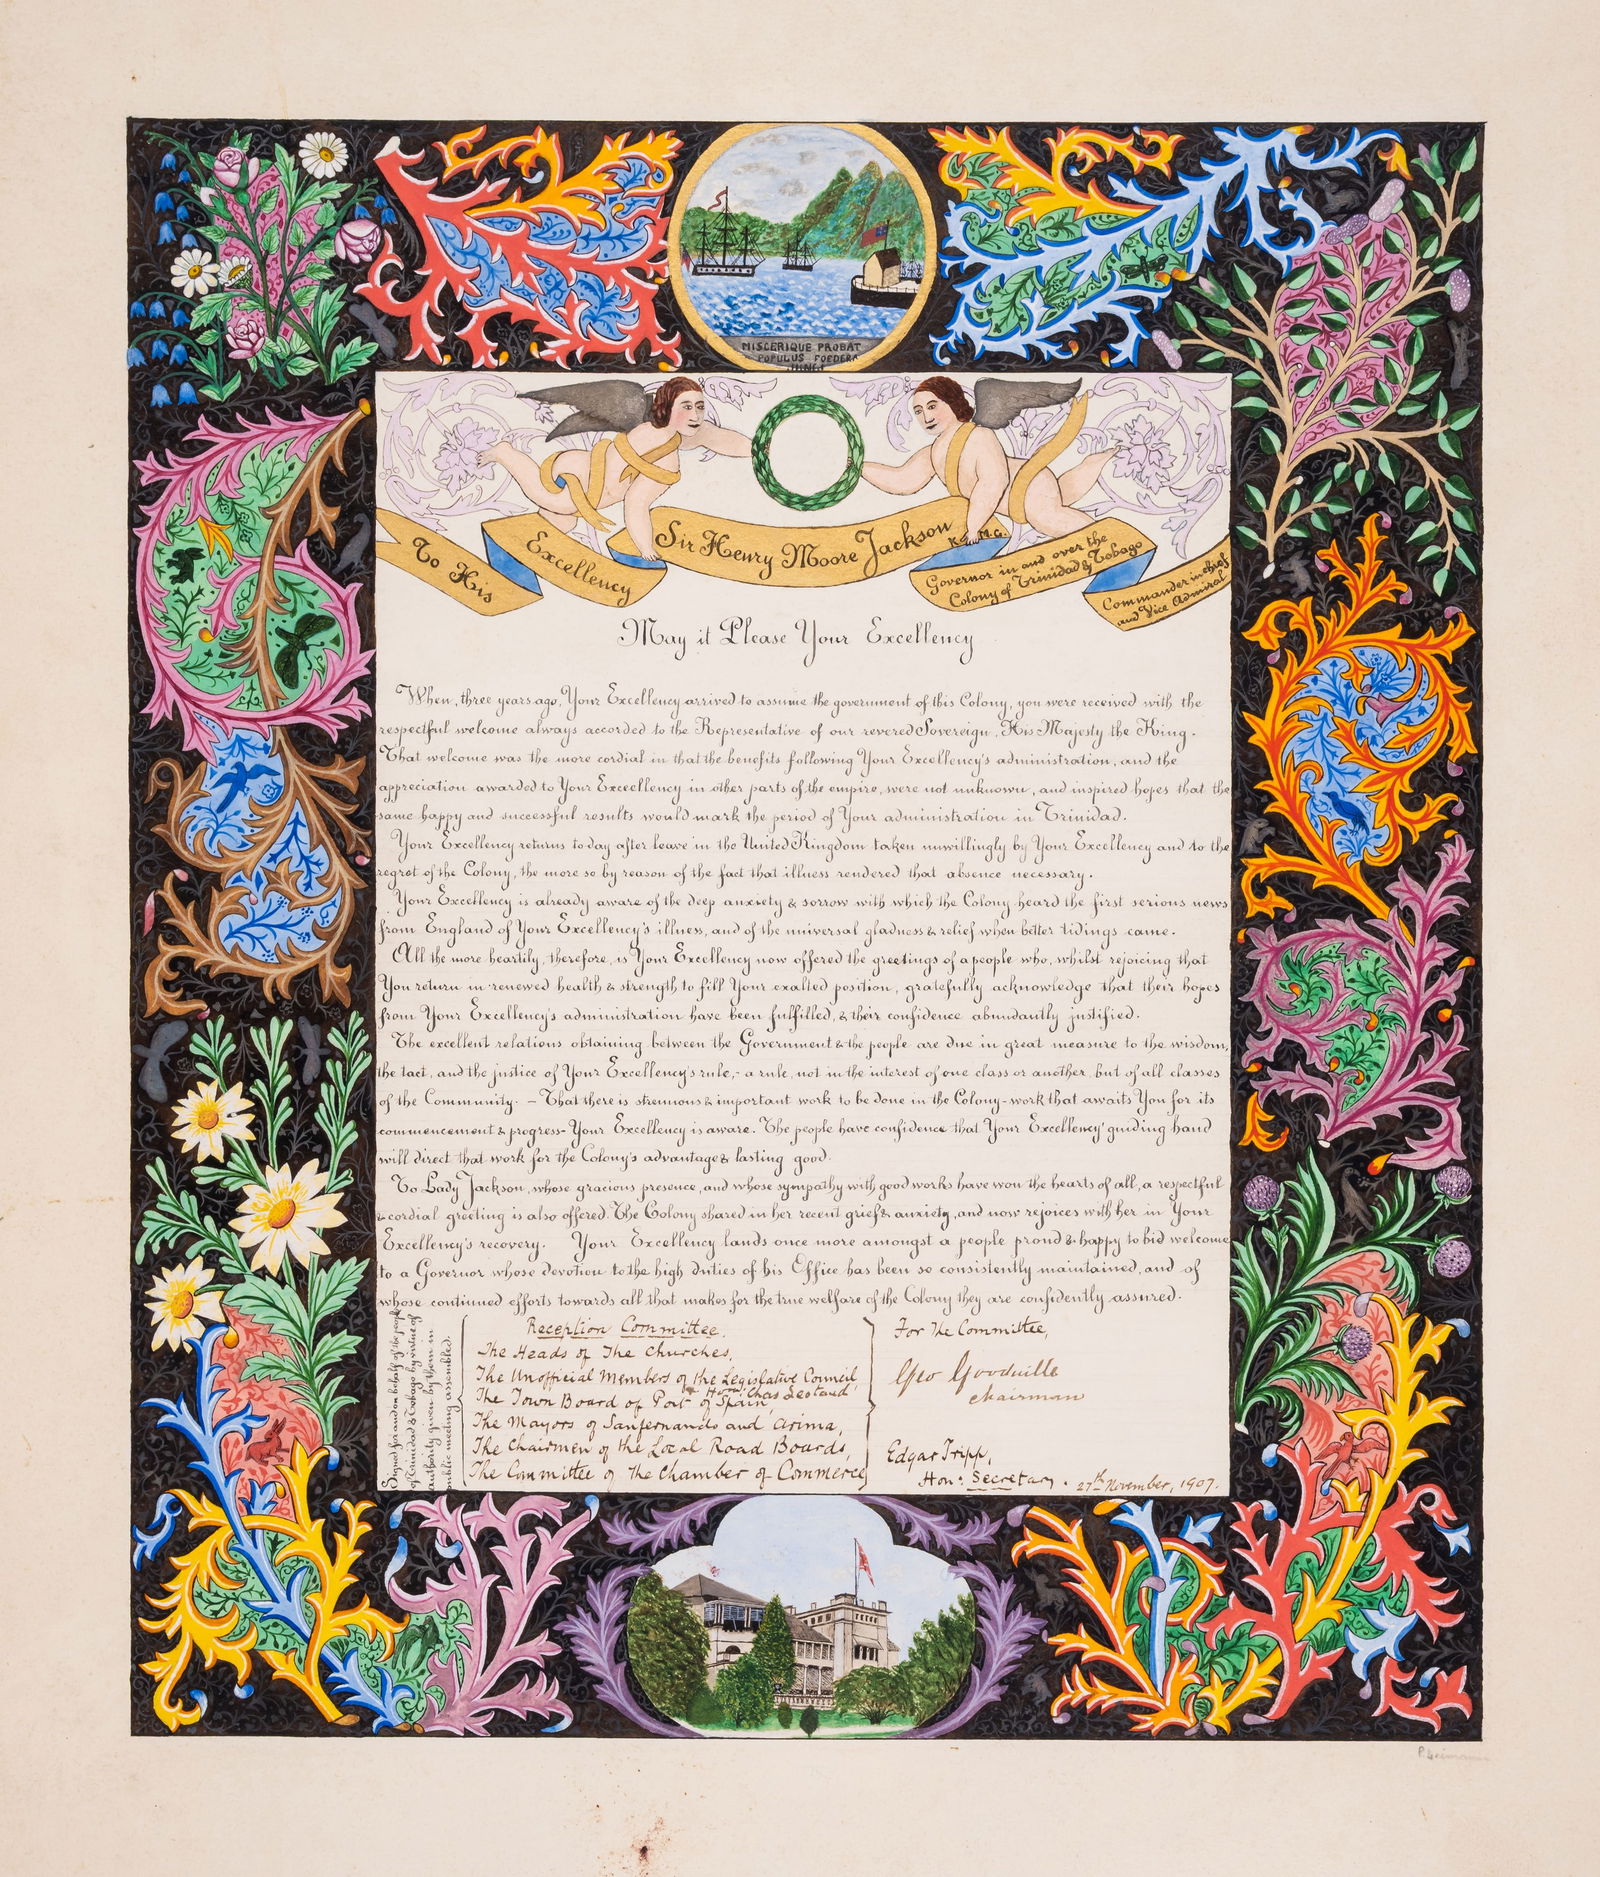 MISCERIQUE PROBAT
POPULUS FOEDERA
JUNGI
To His
Excellency
Sir Henry Moore Jackson
K. C. M. G.
Governor in and over the
Colony of Trinidad & Tobago
Commander in chief
and Vice Admiral
May it Please Your Excellency
When, three years ago, Your Excellency arrived to assume the government of this Colony, you were received with the
respectful welcome always accorded to the Representative of our revered Sovereign, His Majesty the King.
That welcome was the more cordial in that the benefits following Your Excellency's administration, and the
appreciation awarded to Your Excellency in other parts of the empire, were not unknown, and inspired hopes that the
same happy and successful results would mark the period of Your administration in Trinidad.
Your Excellency returns to day after leave in the United Kingdom taken unwillingly by Your Excellency and to the
regret of the Colony, the more so by reason of the fact that illness rendered that absence necessary.
Your Excellency is already aware of the deep anxiety & sorrow with which the Colony heard the first serious news
from England of Your Excellency's illness, and of the universal gladness & relief when better tidings came.
All the more heartily, therefore, is Your Excellency now offered the greetings of a people who, whilst rejoicing that
You return in renewed health & strength to fill Your exalted position, gratefully acknowledge that their hopes
from Your Excellency's administration have been fulfilled, & their confidence abundantly justified.
The excellent relations obtaining between the Government & the people are due in great measure to the wisdom,
the tact, and the justice of Your Excellency's rule,- a rule, not in the interest of one class or another, but of all classes
of the Community. - That there is strenuous & important work to be done in the Colony - work that awaits You for its
commencement & progress - Your Excellency is aware. The people have confidence that Your Excellency' guiding hand
will direct that work for the Colony's advantage & lasting good.
To Lady Jackson, whose gracious presence, and whose sympathy with good works have won the hearts of all, a respectful
& cordial greeting is also offered. The Colony shared in her recent grief & anxiety, and now rejoices with her in Your
Excellency's recovery. Your Excellency lands once more amongst a people proud & happy to bid welcome
to a Governor whose devotion to the high Duties of his Office has been so consistently maintained, and of
whose continued efforts towards all that makes for the true welfare of the Colony they are confidently assured.
Signed for and on behalf of the people
of Trinidad & Tobago by virtue of
authority given by them in
public meeting assembled.
Reception Committee.
The Heads of The Churches,
The Unofficial Members of the Legislative Council,
Honble Chas Leotaud
The Town Board of Port of Spain,
The Mayors of Sanfernando and Arima,
The Chairmen of the Local Road Boards,
The Committee of The Chamber of Commerce
For The Committee,
Geo Goodwille
Chairman
Edgar Tripp,
Hon: Secretary.
27th November, 1907.